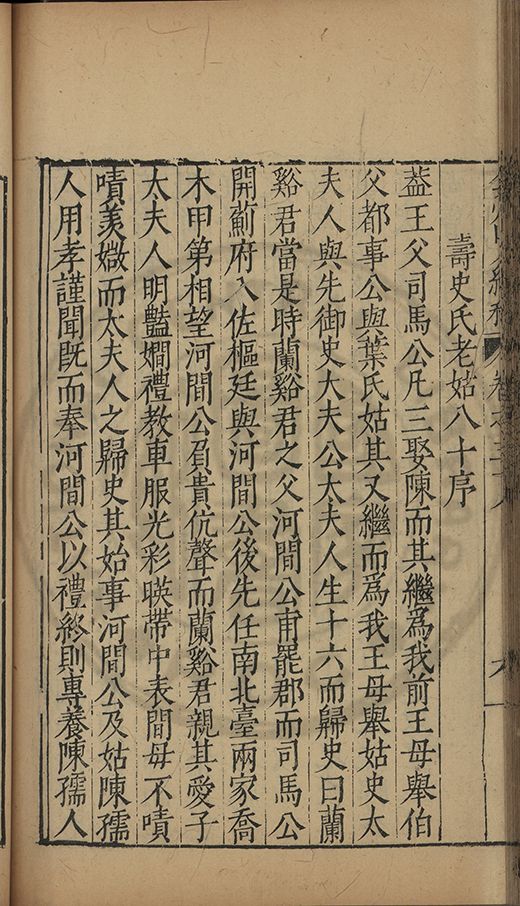 壽史氏老姑八十序
葢王父司馬公凡三娶陳而其繼爲我前王母舉伯
父都事公與葉氏姑其又繼而爲我王母舉姑史太
夫人與先御史大夫公太夫人生十六而歸史曰蘭
谿君當是時蘭谿君之父河間公甫罷郡而司馬公
開薊府入佐樞廷與河間公後先任南北臺兩家喬
木甲第相望河間公負貴伉聲而蘭谿君親其愛子
太夫人明豔嫺禮教車服光彩暎帶中表間毋不嘖
嘖羨媺而太夫人之歸史其始事河間公及姑陳孺
人用孝謹聞既而奉河間公以禮終則專養陳孺人